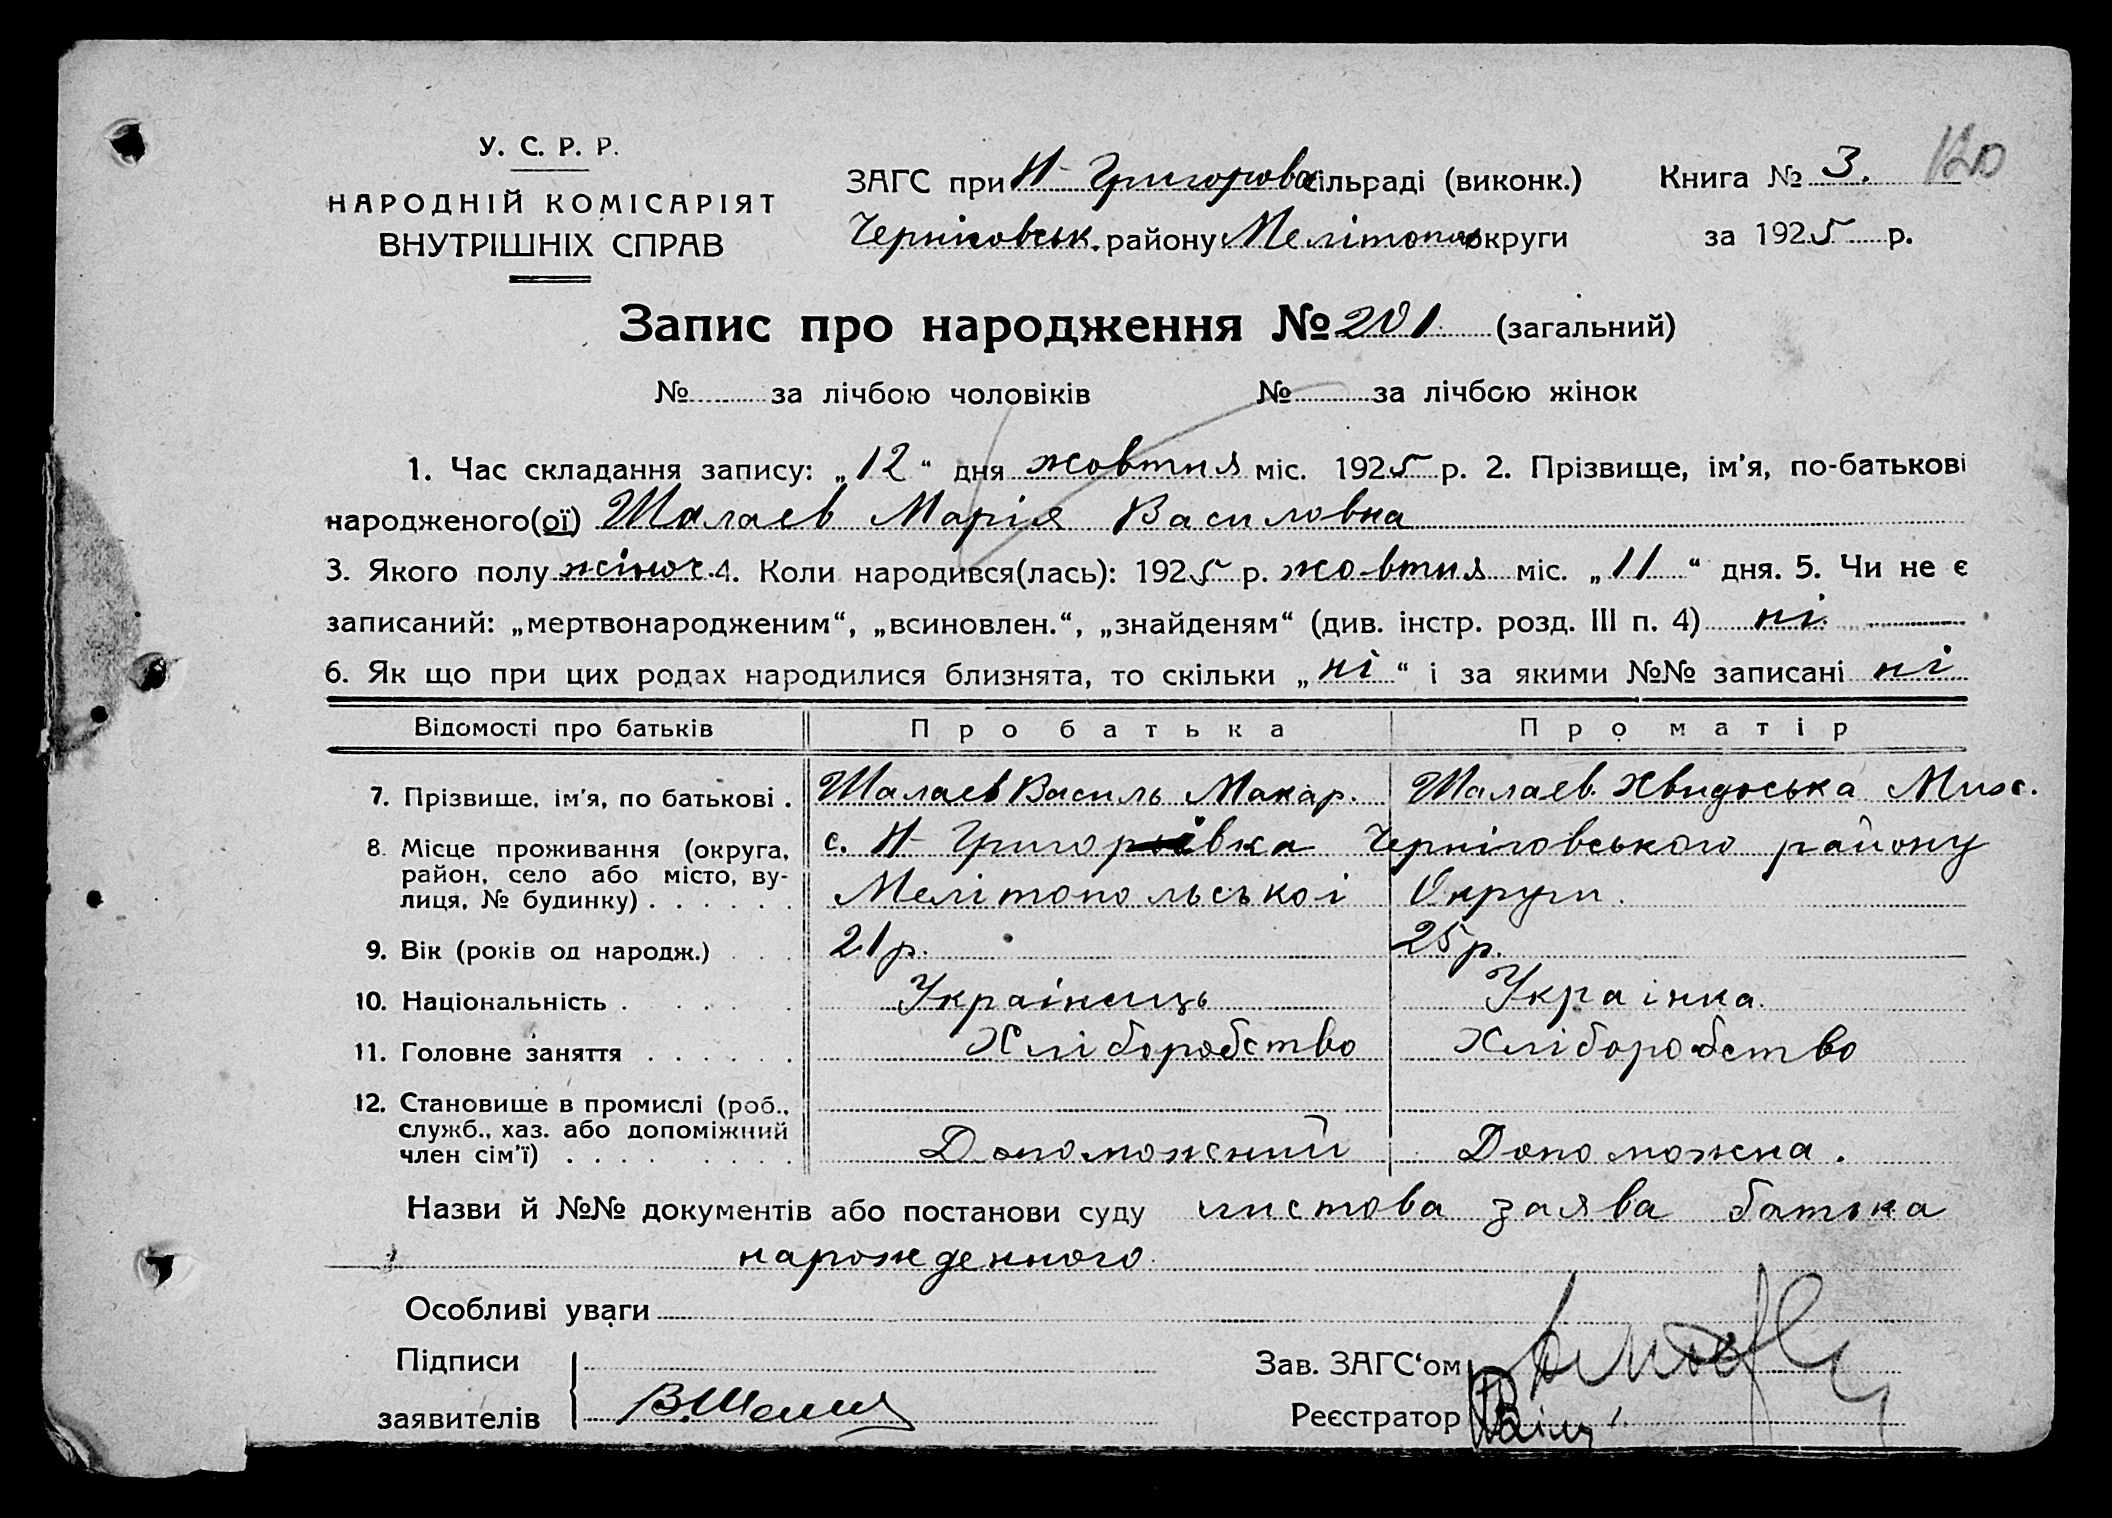 У. С. Р. Р.
НАРОДНІЙ КОМІСАРІЯТ
ВНУТРІШНІХ СПРАВ
ЗАГС при Н-Григоров. сільраді (виконк.)
Черніговськ. району Мелітопол округи
Книга № 3. 120
за 1925 р.
Запис про народження № 201 (загальний)
№ за лічбою чоловіків № за лічбою жінок
1. Час складання запису: „12“ дня жовтня міс. 1925 р. 2. Прізвище, ім'я, по-батькові
народженого(ої) Шалаєв Марія Василовна
3. Якого полу жіноч. 4. Коли народився(лась): 1925 р. жовтня міс. „11“ дня. 5. Чи не є
записаний: „мертвонародженим“, „всиновлен.“, „знайденям“ (див. інстр. розд. III п. 4) ні.
6. Як що при цих родах народилися близнята, то скільки „ні“ і за якими №№ записані ні
Відомості про батьків Про батька Про матір
7. Прізвище, ім'я, по батькові . Шалаєв Василь Макар. Шалаєв Хвидоська Мих.
8. Місце проживання (округа, район, село або місто, вулиця, № будинку) . . . . . . с. Н-Григорівка Черніговського району
Мелітопольської Округи.
9. Вік (років од народж.) . . . 21 р. 25 р.
10. Національність . . . . . . Українець Українка.
11. Головне заняття . . . . . . Хліборобство Хліборобство
12. Становище в промислі (роб., служб., хаз. або допоміжний член сім'ї) . . . . . . . . Допоможний Допоможна.
Назви й №№ документів або постанови суду листова заява батька
нарожденного.
Особливі уваги
Підписи
заявителів В. Шалаев
Зав. ЗАГС'ом
Реєстратор